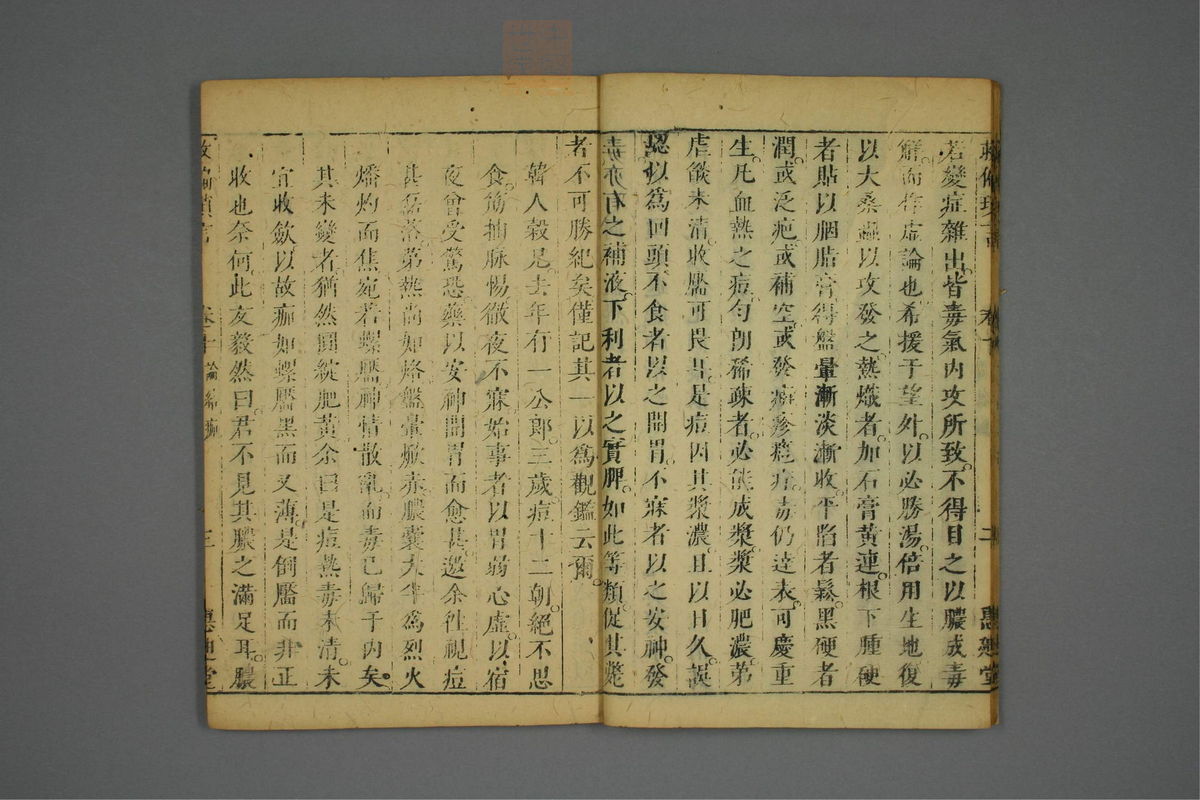 若變症雜出皆毒氣内攻所致不得目之以膿成毒
解而作虛論也希援于望外以必勝湯倍用生地復
以大桑蟲以攻發之熱熾者加石膏黄連根下腫硬
者貼以胭脂膏得盤暈漸淡漸收平陷者鬆黑硬者
潤或泛疤或補空或發癍疹疙瘩毒仍達表可慶重
生凡血熱之痘勻朗稀疎者必能成漿漿必肥濃第
虐燄未清收靨可畏耳是痘因其漿濃且以日久誤
認以爲回頭不食者以之開胃不寐者以之安神發
之補液下利者以之實脾如此等類促其斃
者不可勝紀矣僅記其一以爲觀鑑云爾
韓人穀兄去年有一公郎三歲痘十二朝絕不思
食筋抽脉惕徹夜不寐始事者以胃弱心虛以宿
夜曾受驚恐藥以安神開胃而愈甚邀余徃視痘
甚磊落第熱尚如烙盤暈焮赤膿囊大半爲烈火
燔灼而焦宛若螺靨神情散亂而毒已歸于内矣
其未變者猶然圓綻肥黄余曰是痘熱毒未清未
宜收斂以故痂如螺靨黑而又薄是倒靨而非正
收也奈何此友毅然曰君不見其膿之滿足耳膿
救偏瑣言 卷十 論結痂 三 惠迪堂